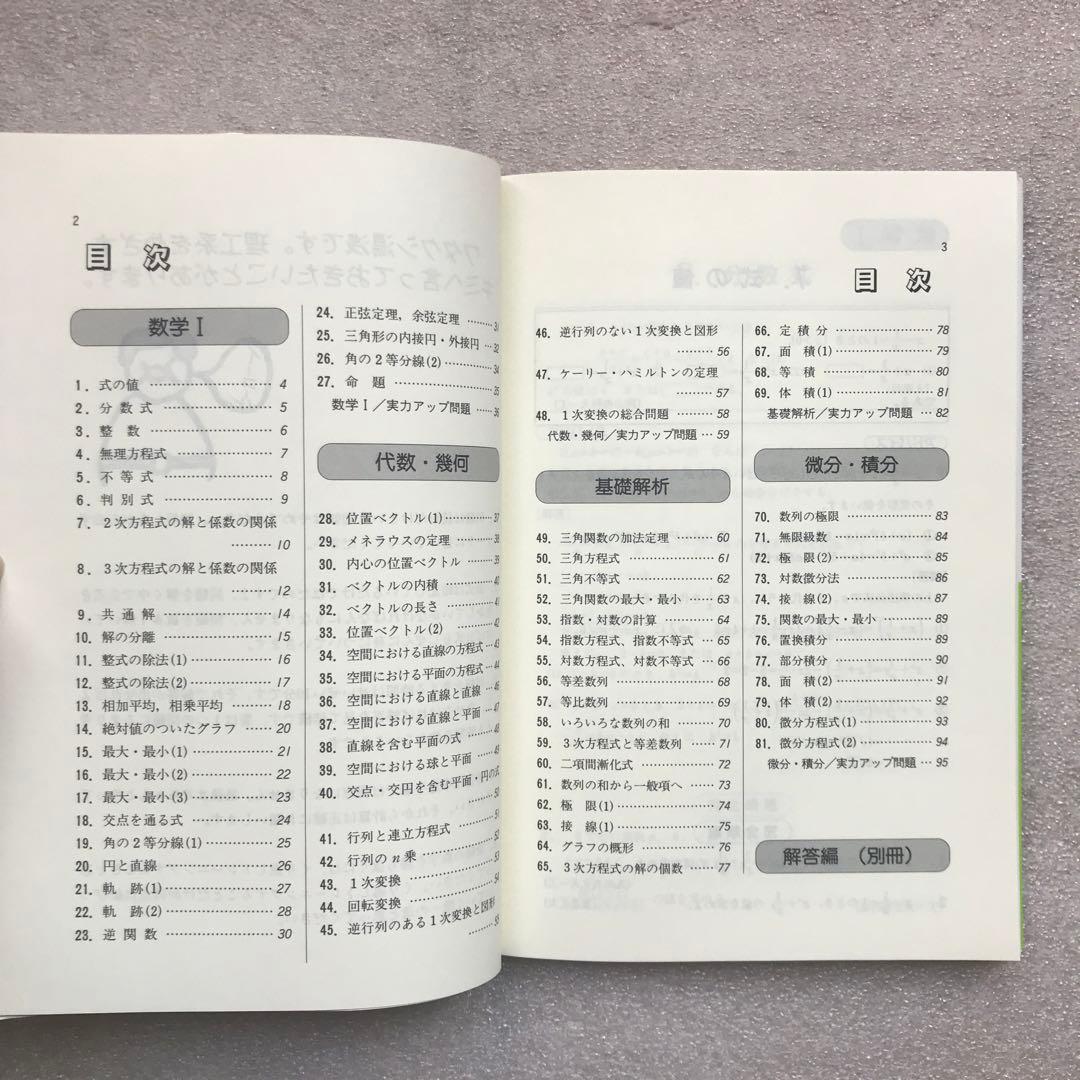 2
目 次
数学Ⅰ
1. 式の値 ………… 4
2. 分数式 ………… 5
3. 整 数 ………… 6
4. 無理方程式 ………… 7
5. 不等式 ………… 8
6. 判別式 ………… 9
7. 2次方程式の解と係数の関係
………… 10
8. 3次方程式の解と係数の関係
………… 12
9. 共通解 ………… 14
10. 解の分離 ………… 15
11. 整式の除法(1) ………… 16
12. 整式の除法(2) ………… 17
13. 相加平均，相乗平均 ………… 18
14. 絶対値のついたグラフ …… 20
15. 最大・最小(1) ………… 21
16. 最大・最小(2) ………… 22
17. 最大・最小(3) ………… 23
18. 交点を通る式 ………… 24
19. 角の2等分線(1) ………… 25
20. 円と直線 ………… 26
21. 軌 跡(1) ………… 27
22. 軌 跡(2) ………… 28
23. 逆関数 ………… 30
24. 正弦定理，余弦定理 ………
25. 三角形の内接円・外接円 … 32
26. 角の2等分線(2) ………… 34
27. 命 題 ………… 35
数学Ⅰ／実力アップ問題 … 36
代数・幾何
28. 位置ベクトル(1) ………… 37
29. メネラウスの定理 ………… 38
30. 内心の位置ベクトル ……… 39
31. ベクトルの内積 ………… 40
32. ベクトルの長さ ………… 41
33. 位置ベクトル(2) ………… 42
34. 空間における直線の方程式 … 43
35. 空間における平面の方程式 … 44
36. 空間における直線と直線 … 46
37. 空間における直線と平面 … 47
38. 直線を含む平面の式 …… 48
39. 空間における球と平面 …… 49
40. 交点・交円を含む平面・円の式
………… 50
41. 行列と連立方程式 ……… 51
42. 行列のn乗 ………… 52
43. 1次変換 ………… 53
44. 回転変換 ………… 54
45. 逆行列のある1次変換と図形
………… 55
3
目 次
46. 逆行列のない1次変換と図形
………… 56
47. ケーリー・ハミルトンの定理
………… 57
48. 1次変換の総合問題 …… 58
代数・幾何／実力アップ問題 … 59
基礎解析
49. 三角関数の加法定理 …… 60
50. 三角方程式 ………… 61
51. 三角不等式 ………… 62
52. 三角関数の最大・最小 …… 63
53. 指数・対数の計算 ……… 64
54. 指数方程式、指数不等式 … 65
55. 対数方程式、対数不等式 … 66
56. 等差数列 ………… 68
57. 等比数列 ………… 69
58. いろいろな数列の和 …… 70
59. 3次方程式と等差数列 …… 71
60. 二項間漸化式 ………… 72
61. 数列の和から一般項へ … 73
62. 極 限(1) ………… 74
63. 接 線(1) ………… 75
64. グラフの概形 ………… 76
65. 3次方程式の解の個数 … 77
66. 定積分 ………… 78
67. 面 積(1) ………… 79
68. 等 積 ………… 80
69. 体 積(1) ………… 81
基礎解析／実力アップ問題 … 82
微分・積分
70. 数列の極限 ………… 83
71. 無限級数 ………… 84
72. 極 限(2) ………… 85
73. 対数微分法 ………… 86
74. 接 線(2) ………… 87
75. 関数の最大・最小 ……… 89
76. 置換積分 ………… 89
77. 部分積分 ………… 90
78. 面 積(2) ………… 91
79. 体 積(2) ………… 92
80. 微分方程式(1) ………… 93
81. 微分方程式(2) ………… 94
微分・積分／実力アップ問題 … 95
解答編 (別冊)